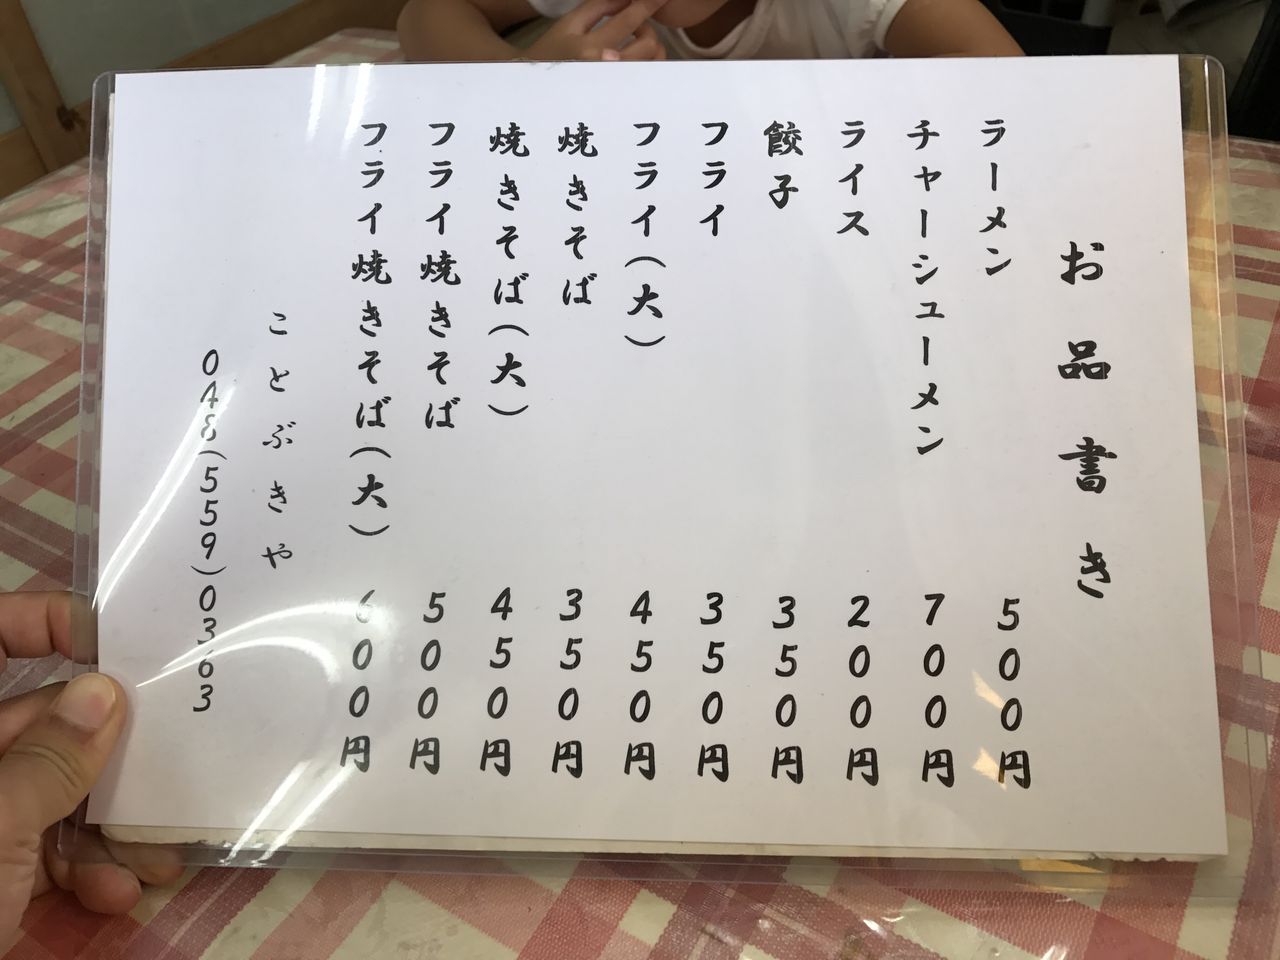 お品書き
ラーメン 500円
チャーシューメン 700円
ライス 200円
餃子 350円
フライ 350円
フライ(大) 450円
焼きそば 350円
焼きそば(大) 450円
フライ焼きそば 500円
フライ焼きそば(大) 600円
ことぶきや
048(559)0363